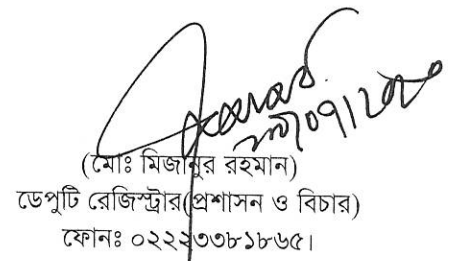 (মোঃ মিজানুর রহমান)
ডেপুটি রেজিস্ট্রার(প্রশাসন ও বিচার)
ফোনঃ ০২২২৩৩৮১৮৬৫।